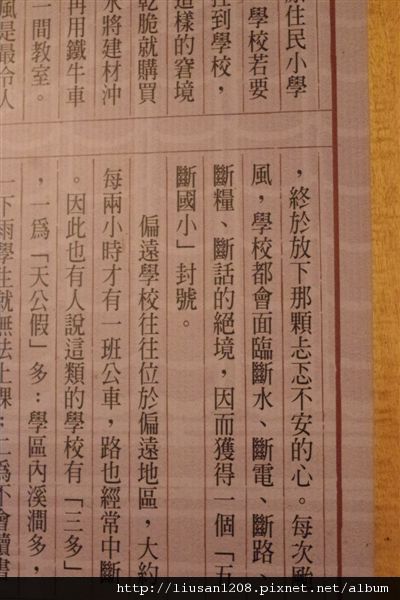 原住民小學
學校若要
到學校，
這樣的窘境
乾脆就購買
水將建材沖
再用鐵牛車
一間教室。
風是最令人
，終於放下那顆忐忑不安的心。每次颱
風，學校都會面臨斷水、斷電、斷路、
斷糧、斷話的絕境，因而獲得一個「五
斷國小」封號。
偏遠學校往往位於偏遠地區，大約
每兩小時才有一班公車，路也經常中斷
。因此也有人說這類的學校有「三多」
，一爲「天公假」多：學區內溪澗多，
一下雨學生就無法上課；二爲不會讀書
http://liusan1208.pixnet.net/album